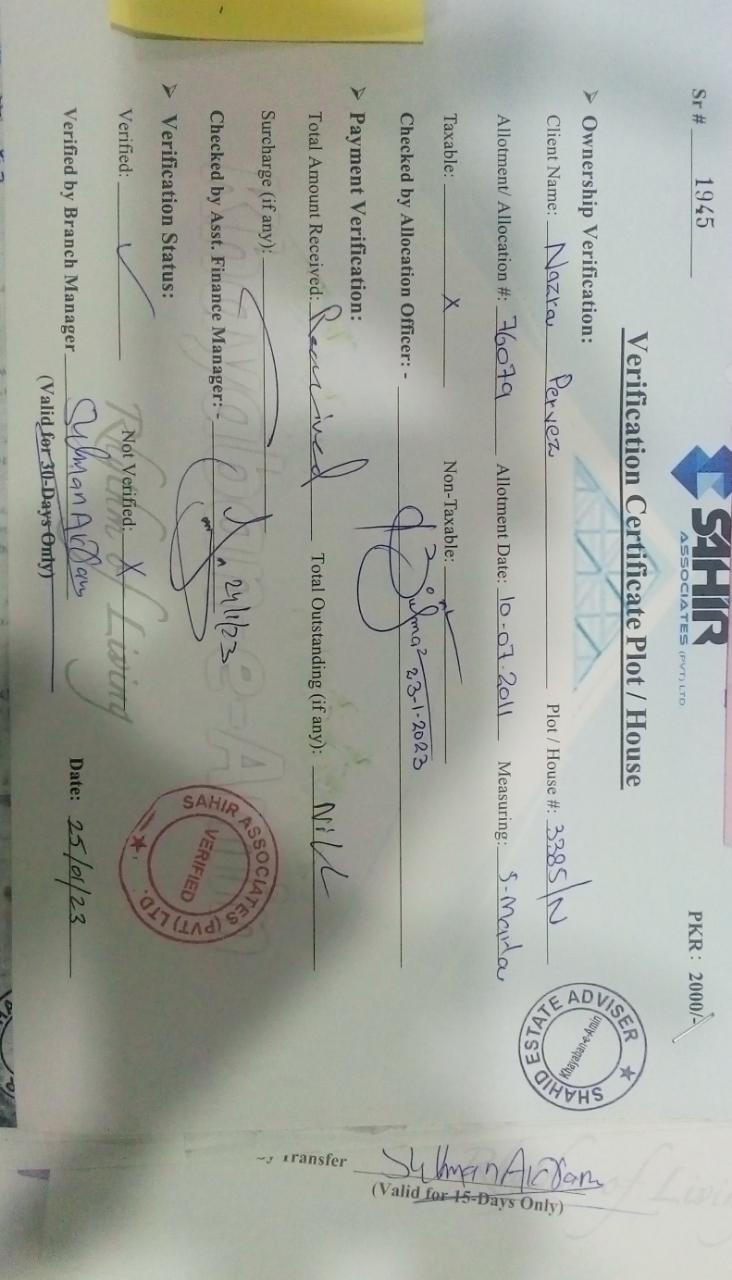 Sr # 1945
SAHIR
ASSOCIATES (PVT) LTD.
PKR : 2000/-
Verification Certificate Plot / House
➤ Ownership Verification:
Client Name: Nazra Pervez Plot / House #: 3385/N
Allotment/ Allocation #: 76079 Allotment Date: 10-07-2011 Measuring: 5-Marla
Taxable: X Non-Taxable:
Checked by Allocation Officer: - 23-1-2023
➤ Payment Verification:
Total Amount Received: Received Total Outstanding (if any): Nill
Surcharge (if any):
Checked by Asst. Finance Manager: - 24/1/23
➤ Verification Status:
Verified: ✓ Not Verified: X
Verified by Branch Manager Date: 25/01/23
(Valid for 30-Days Only)
SHAHID ESTATE ADVISER
Khayaban-e-Amin
SAHIR ASSOCIATES (PVT) LTD.
VERIFIED
Transfer
(Valid for 15-Days Only)
of Living